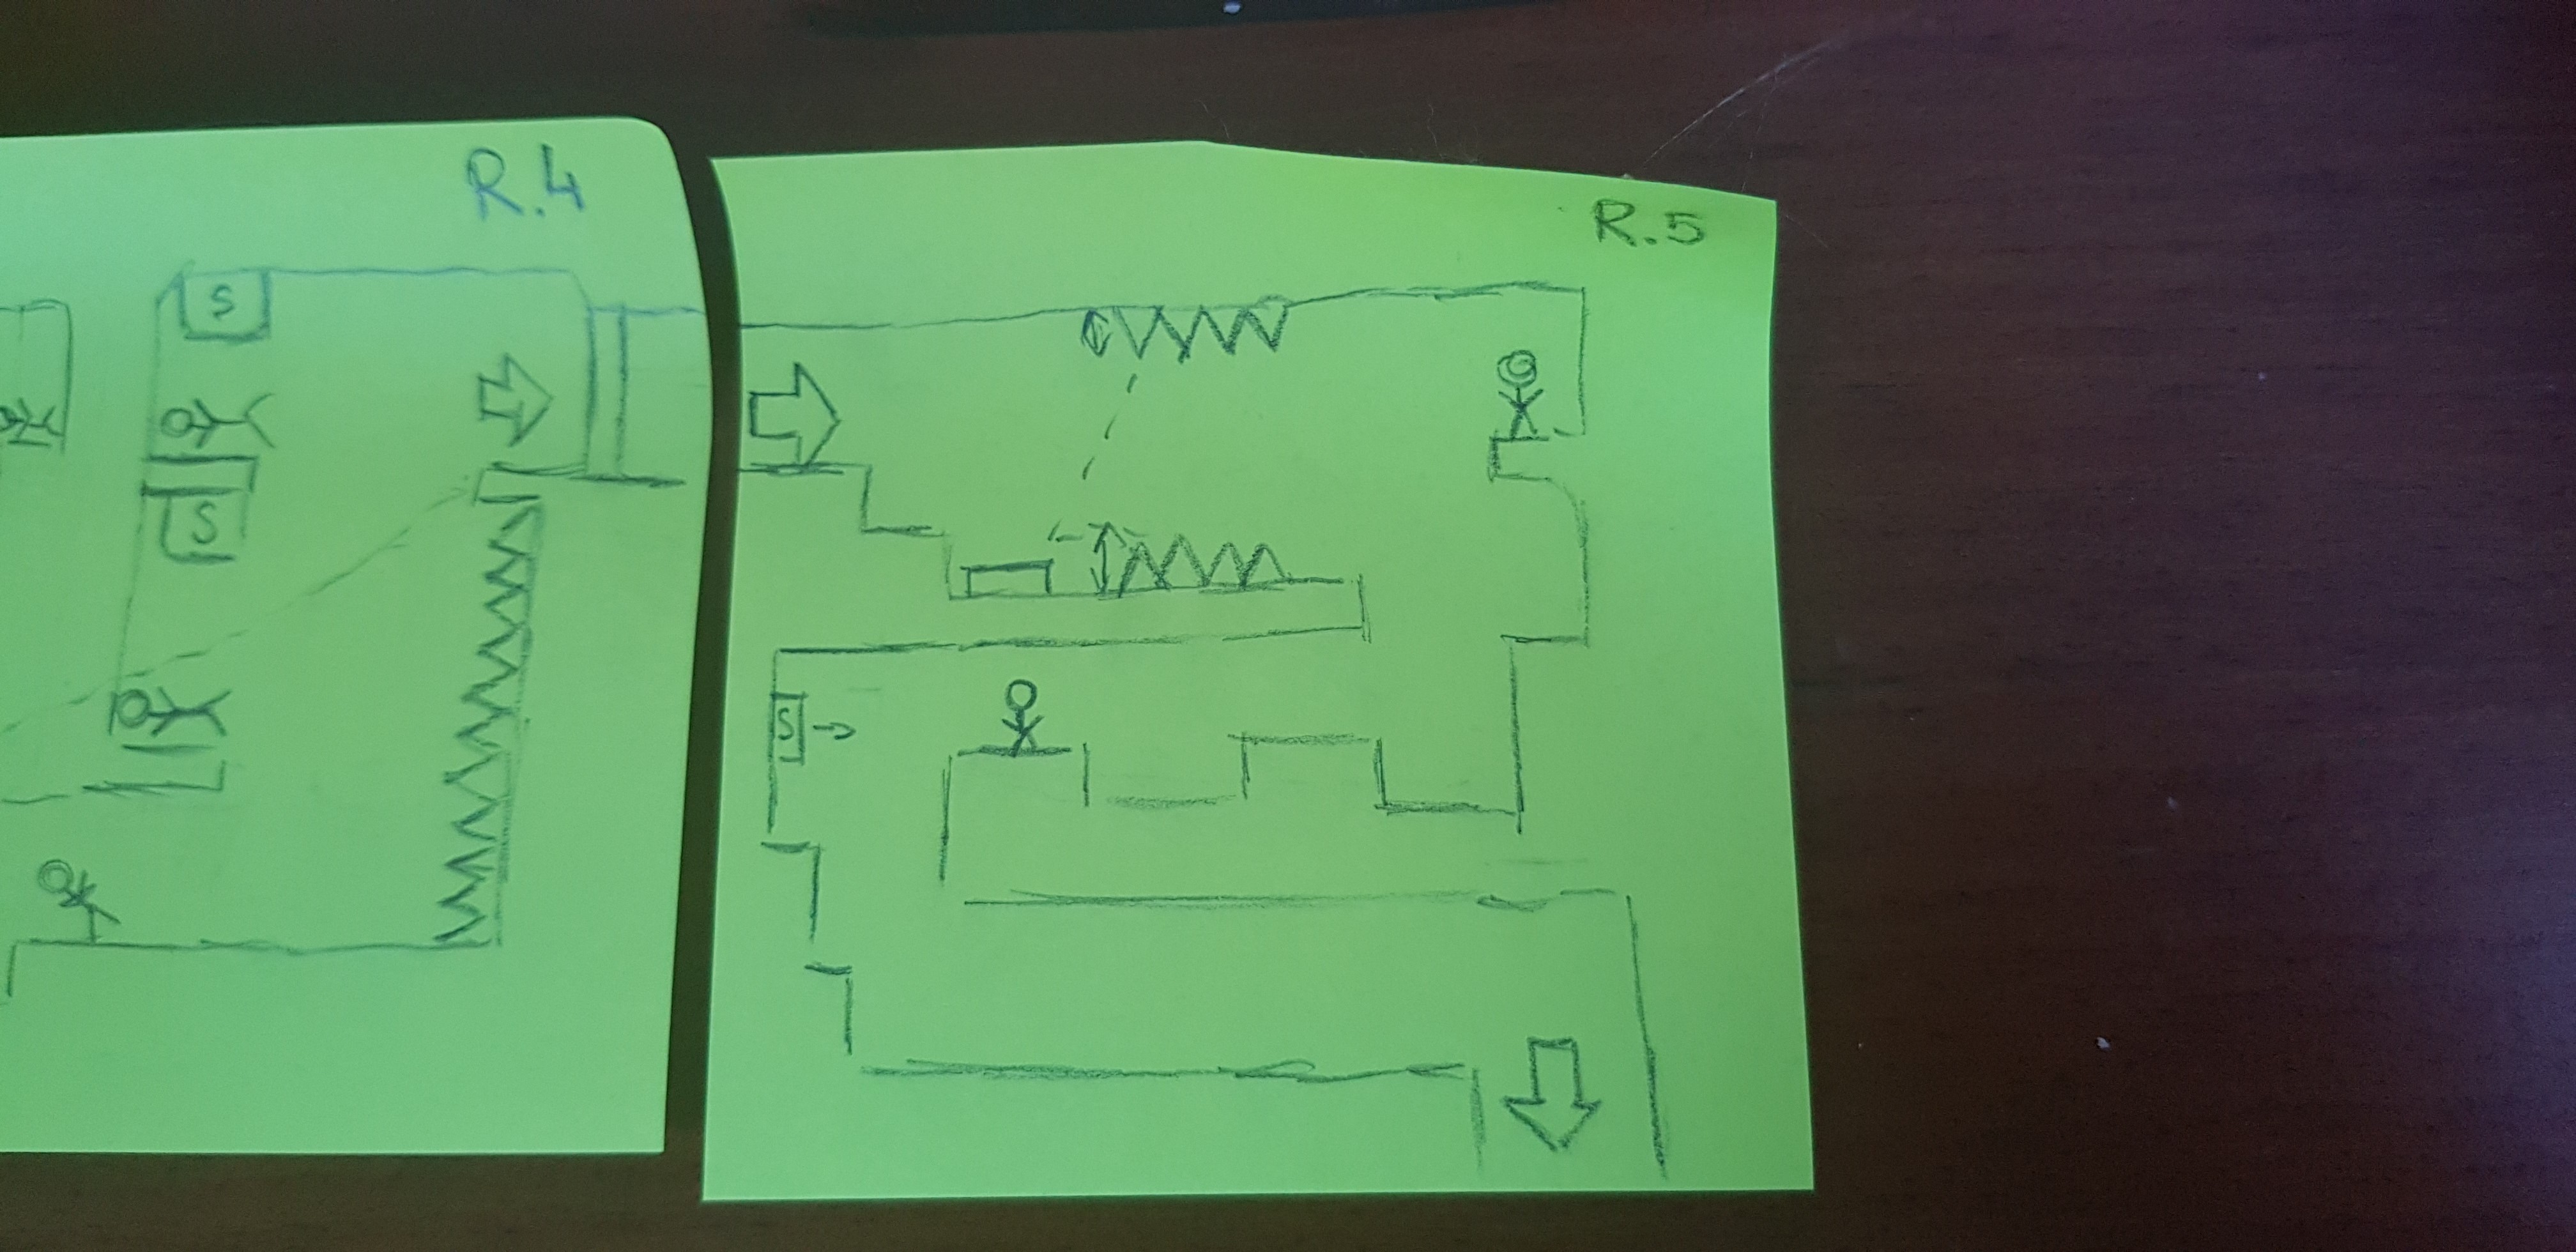 R.4
S
S
R.5
S